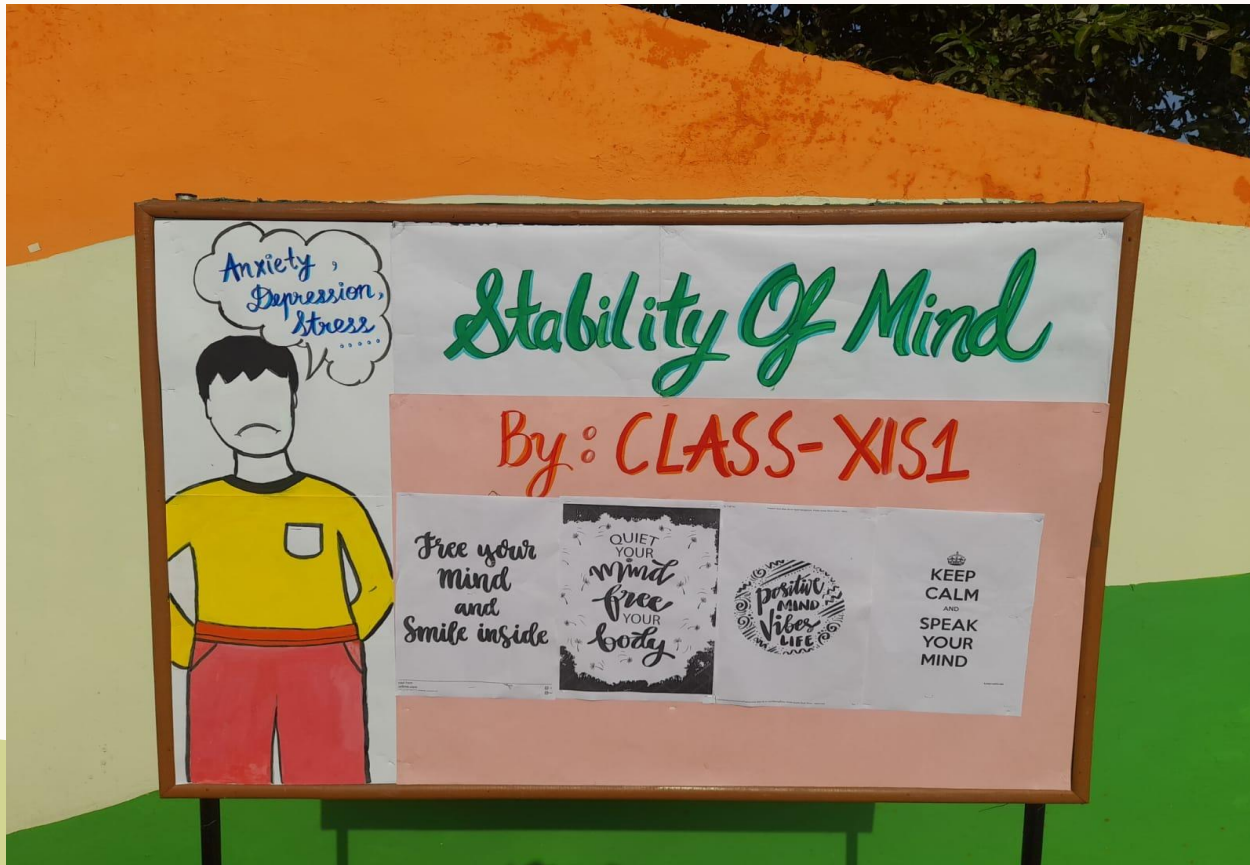 Anxiety,
Depression,
Stress
.....
Stability Of Mind
By: CLASS-XIS1
Free your
mind
and
Smile inside
QUIET
YOUR
mind
free
YOUR
body
positive
MIND
Vibes
LIFE
KEEP
CALM
AND
SPEAK
YOUR
MIND